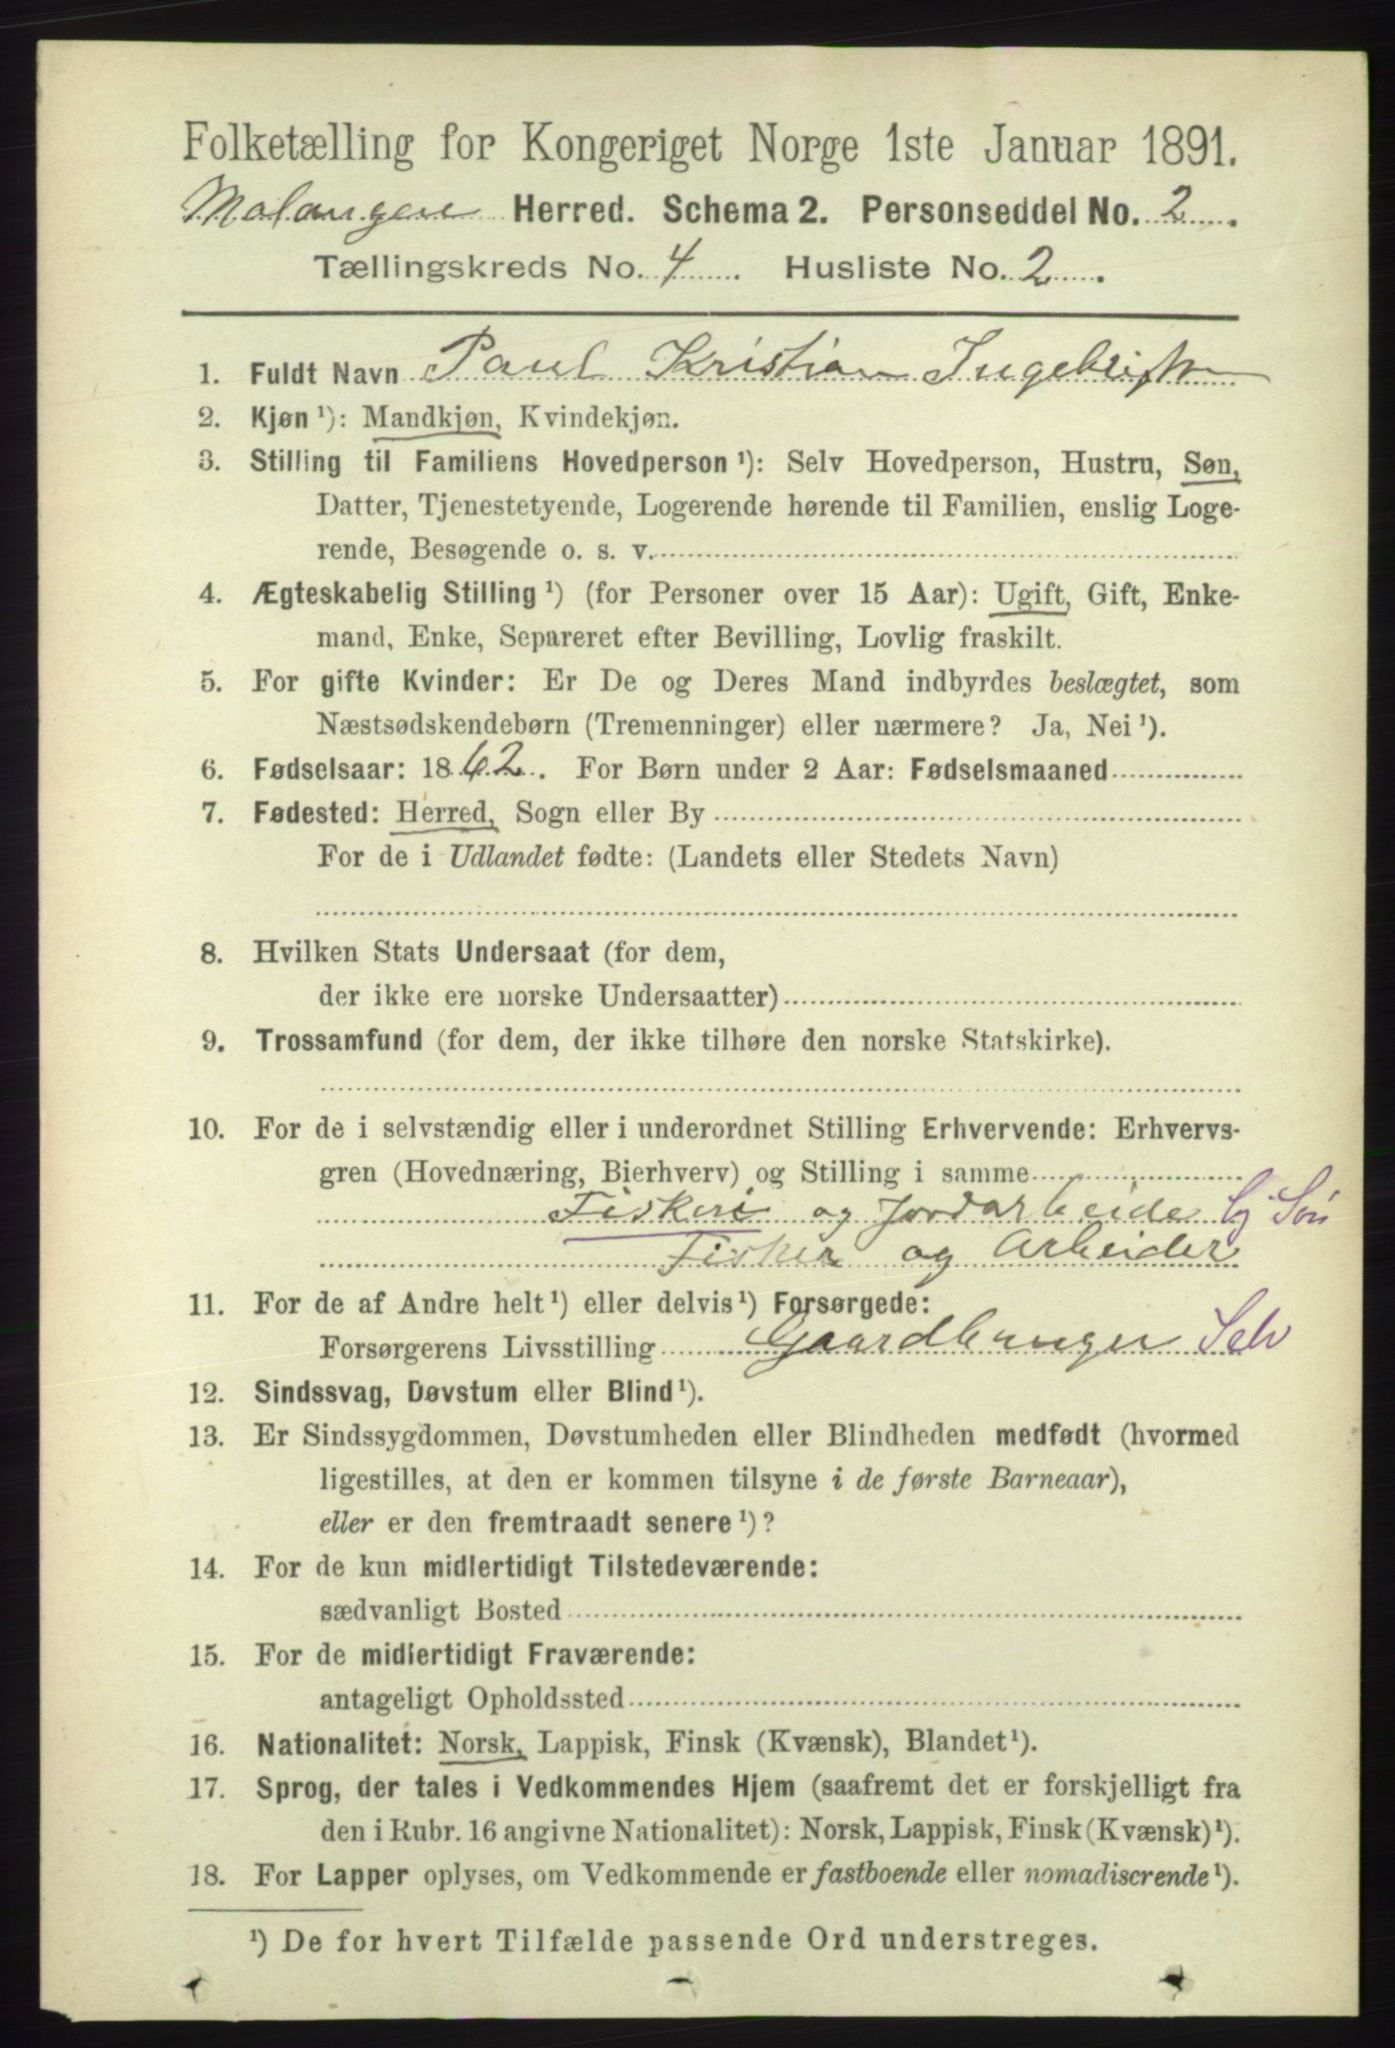 Folketælling for Kongeriget Norge 1ste Januar 1891.
Malangen Herred. Schema 2. Personseddel No. 2.
Tællingskreds No. 4. Husliste No. 2.
1. Fuldt Navn Paul Kristian Ingebrigtsen
2. Kjøn ¹): Mandkjøn, Kvindekjøn.
3. Stilling til Familiens Hovedperson ¹): Selv Hovedperson, Hustru, Søn,
Datter, Tjenestetyende, Logerende hørende til Familien, enslig Loge-
rende, Besøgende o. s. v.
4. Ægteskabelig Stilling ¹) (for Personer over 15 Aar): Ugift, Gift, Enke-
mand, Enke, Separeret efter Bevilling, Lovlig fraskilt.
5. For gifte Kvinder: Er De og Deres Mand indbyrdes beslægtet, som
Næstsødskendebørn (Tremenninger) eller nærmere? Ja, Nei ¹).
6. Fødselsaar: 1862. For Børn under 2 Aar: Fødselsmaaned
7. Fødested: Herred, Sogn eller By
For de i Udlandet fødte: (Landets eller Stedets Navn)
8. Hvilken Stats Undersaat (for dem,
der ikke ere norske Undersaatter)
9. Trossamfund (for dem, der ikke tilhøre den norske Statskirke).
10. For de i selvstændig eller i underordnet Stilling Erhvervende: Erhvervs-
gren (Hovednæring, Bierhverv) og Stilling i samme
Fiskeri og Jordarbeide Gj Søn
Fisker og Arbeider
11. For de af Andre helt ¹) eller delvis ¹) Forsørgede:
Forsørgerens Livsstilling Gaardbruger Selv
12. Sindssvag, Døvstum eller Blind ¹).
13. Er Sindssygdommen, Døvstumheden eller Blindheden medfødt (hvormed
ligestilles, at den er kommen tilsyne i de første Barneaar),
eller er den fremtraadt senere ¹)?
14. For de kun midlertidigt Tilstedeværende:
sædvanligt Bosted
15. For de midlertidigt Fraværende:
antageligt Opholdssted
16. Nationalitet: Norsk, Lappisk, Finsk (Kvænsk), Blandet ¹).
17. Sprog, der tales i Vedkommendes Hjem (saafremt det er forskjelligt fra
den i Rubr. 16 angivne Nationalitet): Norsk, Lappisk, Finsk (Kvænsk) ¹).
18. For Lapper oplyses, om Vedkommende er fastboende eller nomadiserende ¹).
¹) De for hvert Tilfælde passende Ord understreges.